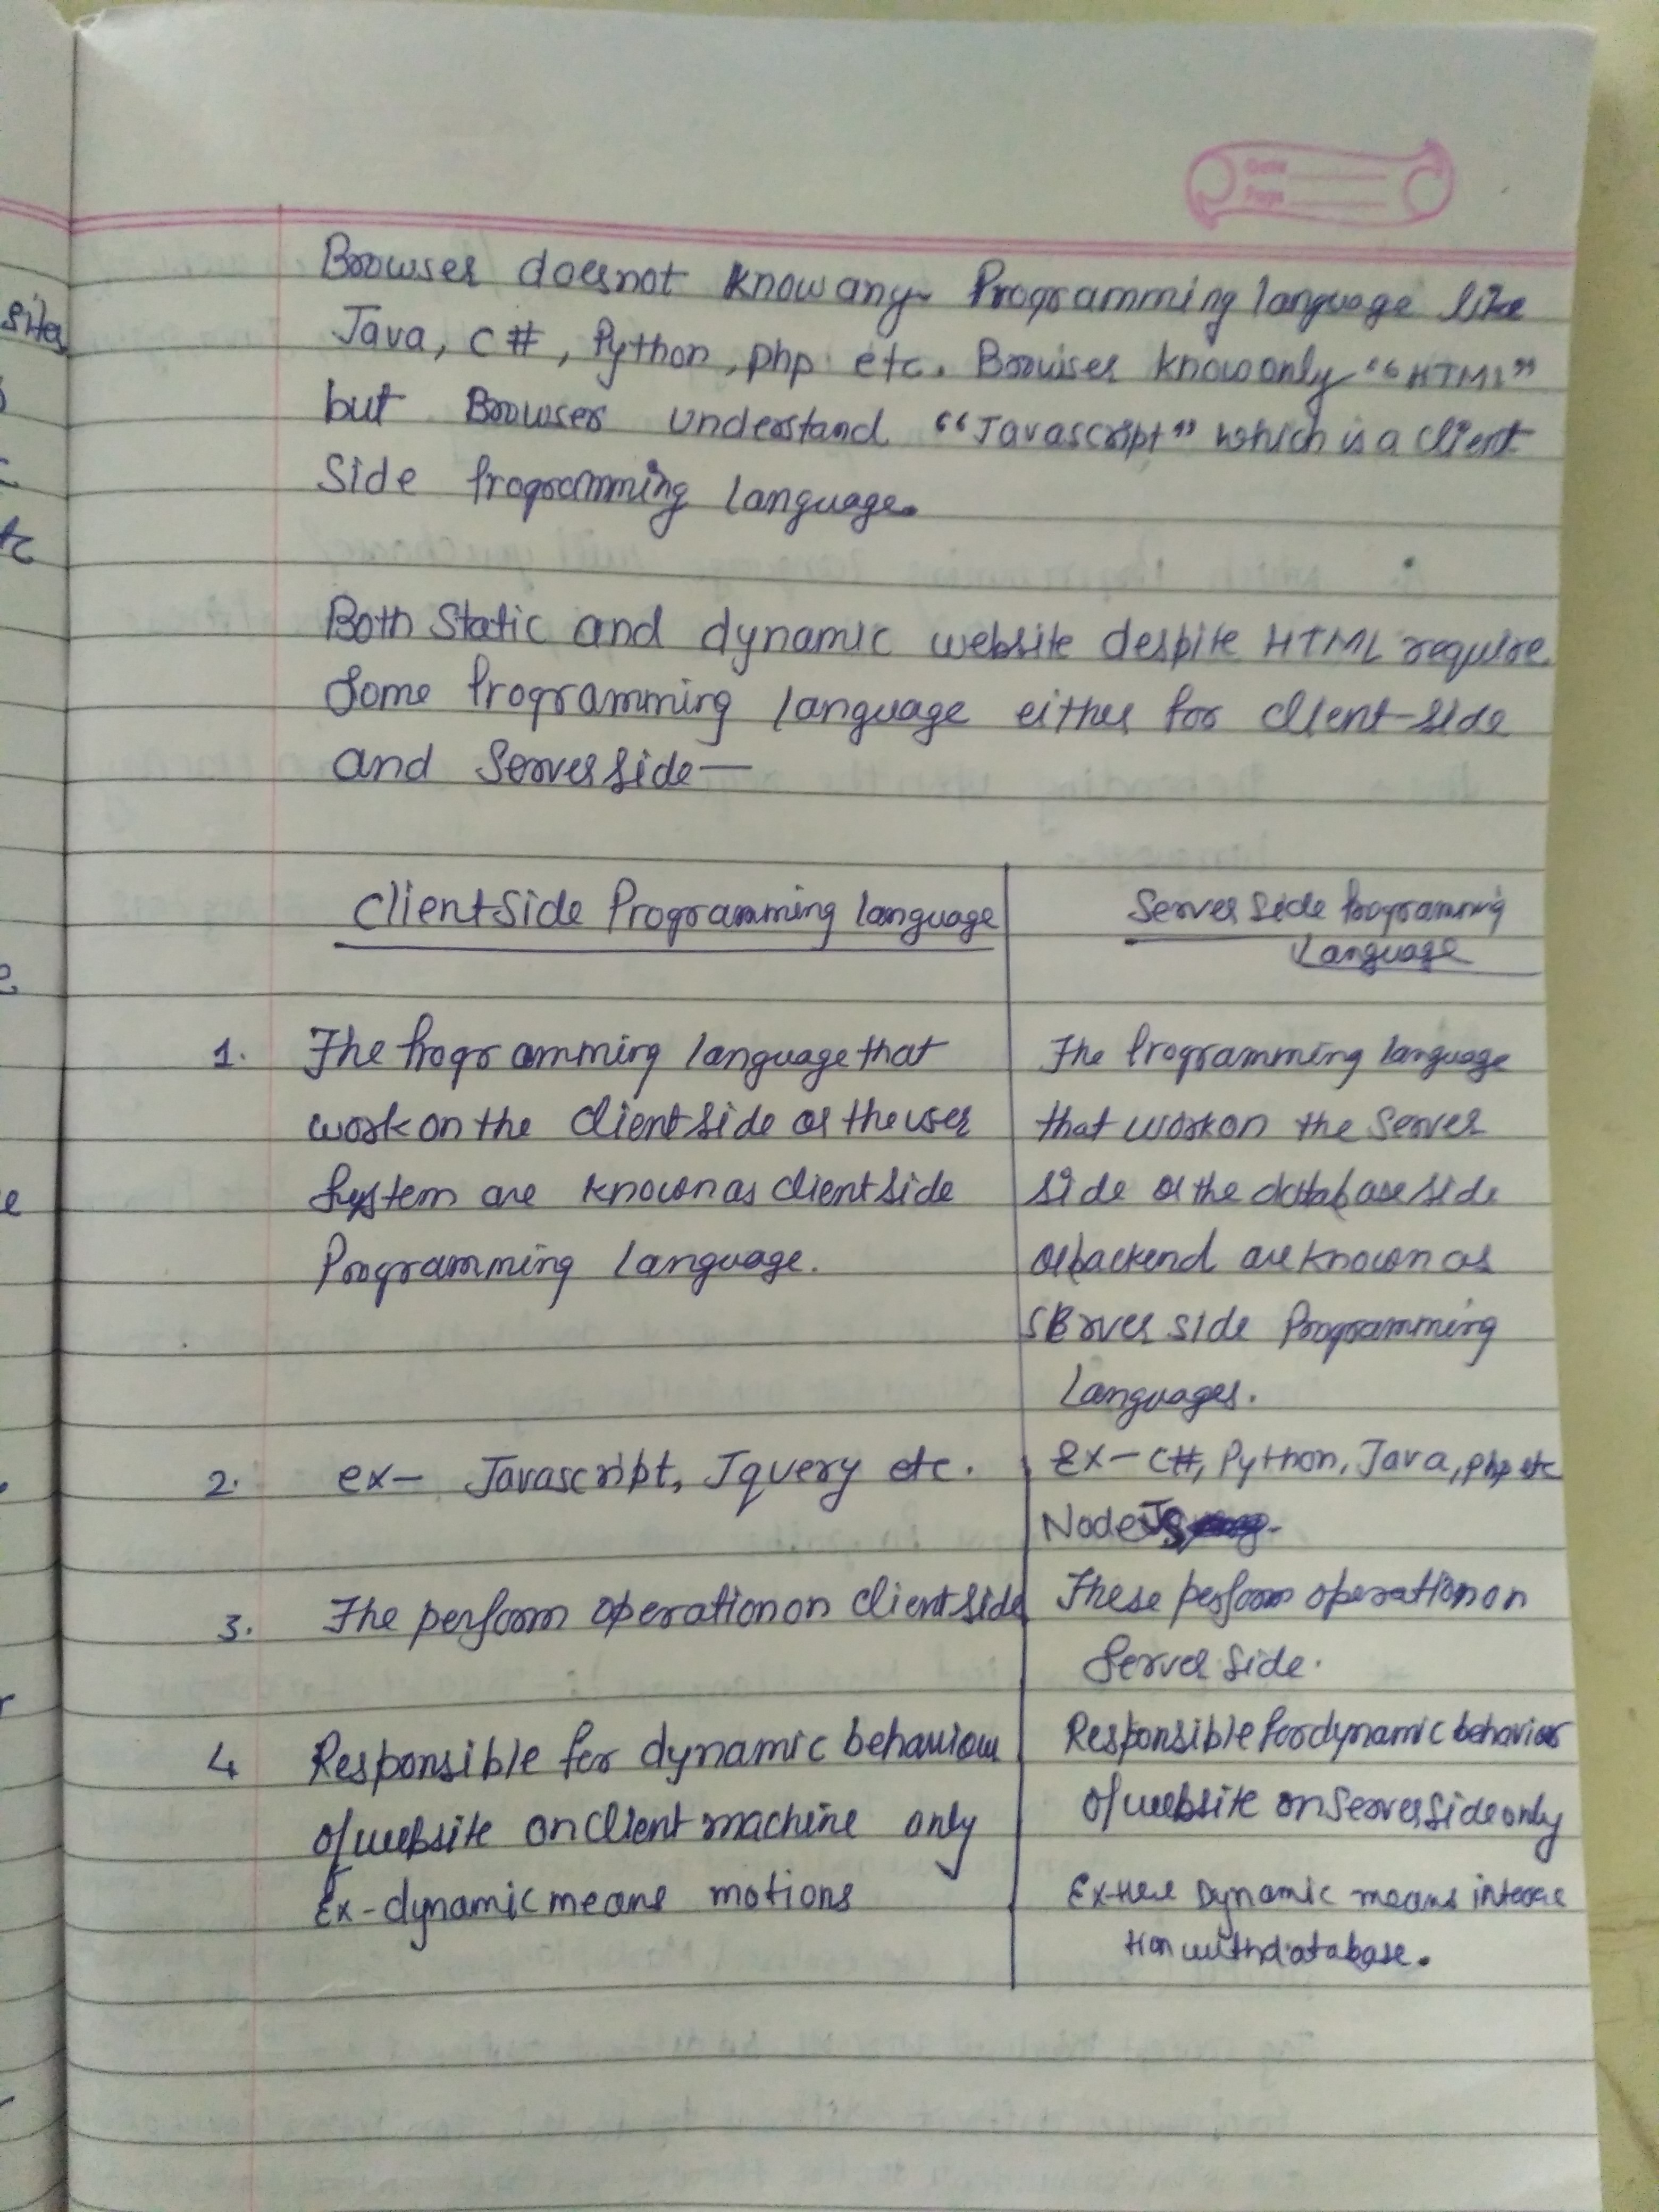 Date
Page
Browser doesnot know any Programming language like
Java, C#, Python, php etc. Browser know only "HTML"
but Browser understand "Javascript" which is a client
Side Programming language.
Both Static and dynamic website despite HTML require
Some Programming language either for client-side
and Server side—
Client Side Programming language
Server Side Programming
Language
1. The Programming language that
work on the Client side or the user
System are known as client side
Programming language.
The Programming language
that work on the Server
side or the database side
or backend are known as
Server side Programming
Languages.
2. ex- Javascript, Jquery etc.
Ex- C#, Python, Java, php etc
Node JS
3. The perform operation on client side
These perform operation on
Server Side.
4 Responsible for dynamic behaviour
of website on client machine only
Ex- dynamic means motions
Responsible for dynamic behavior
of website on Server side only
Ex- Here Dynamic means interac
tion with database.
sites
etc